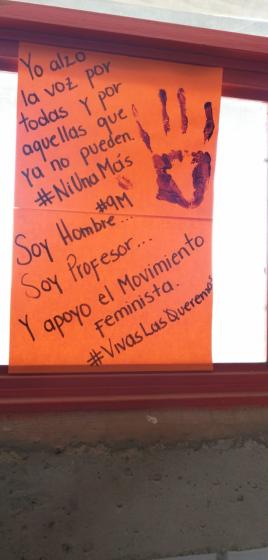 Yo alzo
la voz por
todas Y por
aquellas que
ya no pueden.
#NiUnaMás
#9M
Soy Hombre...
Soy Profesor...
Y apoyo el Movimiento
Feminista.
#VivasLasQueremos